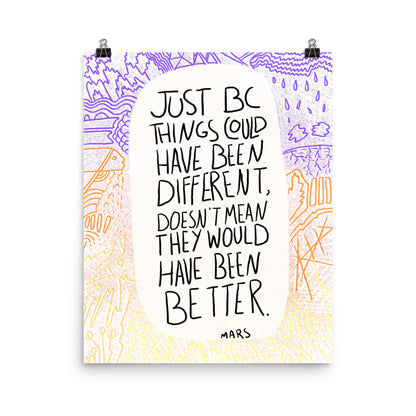 JUST BC
THINGS COULD
HAVE BEEN
DIFFERENT,
DOESN'T MEAN
THEY WOULD
HAVE BEEN
BETTER.
MARS